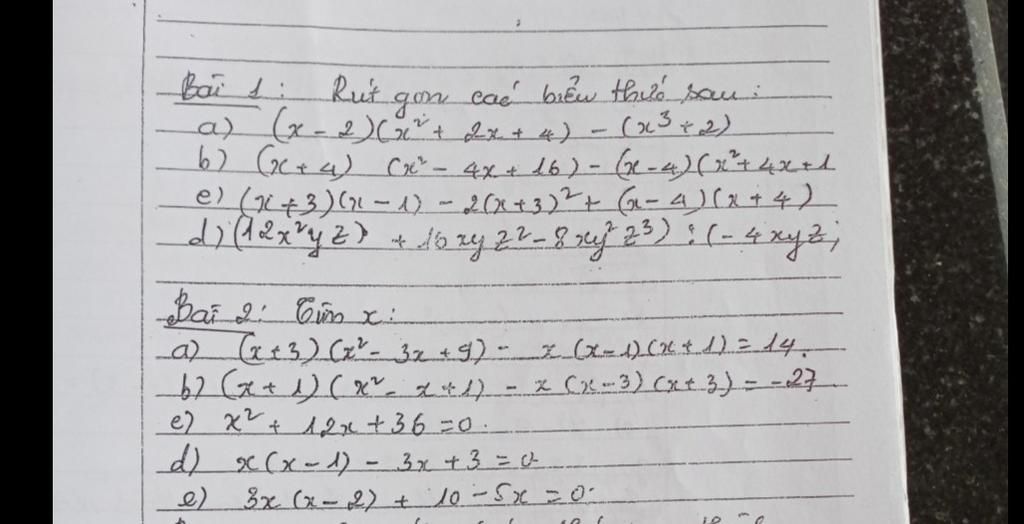 Bài 1: Rút gọn các biểu thức sau:
a) (x - 2)(x² + 2x + 4) - (x³ + 2)
b) (x + 4) (x² - 4x + 16) - (x - 4)(x² + 4x + 1
c) (x + 3)(x - 1) - 2(x + 3)² + (x - 4)(x + 4)
d) (12x²yz) + 16xyz² - 8xy²z³) : (-4xyz)
Bài 2: Tìm x:
a) (x + 3)(x² - 3x + 9) - x(x - 1)(x + 1) = 14.
b) (x + 1)(x² - x + 1) - x(x - 3)(x + 3) = -27
c) x² + 12x + 36 = 0.
d) x(x - 1) - 3x + 3 = 0
e) 3x(x - 2) + 10 - 5x = 0.